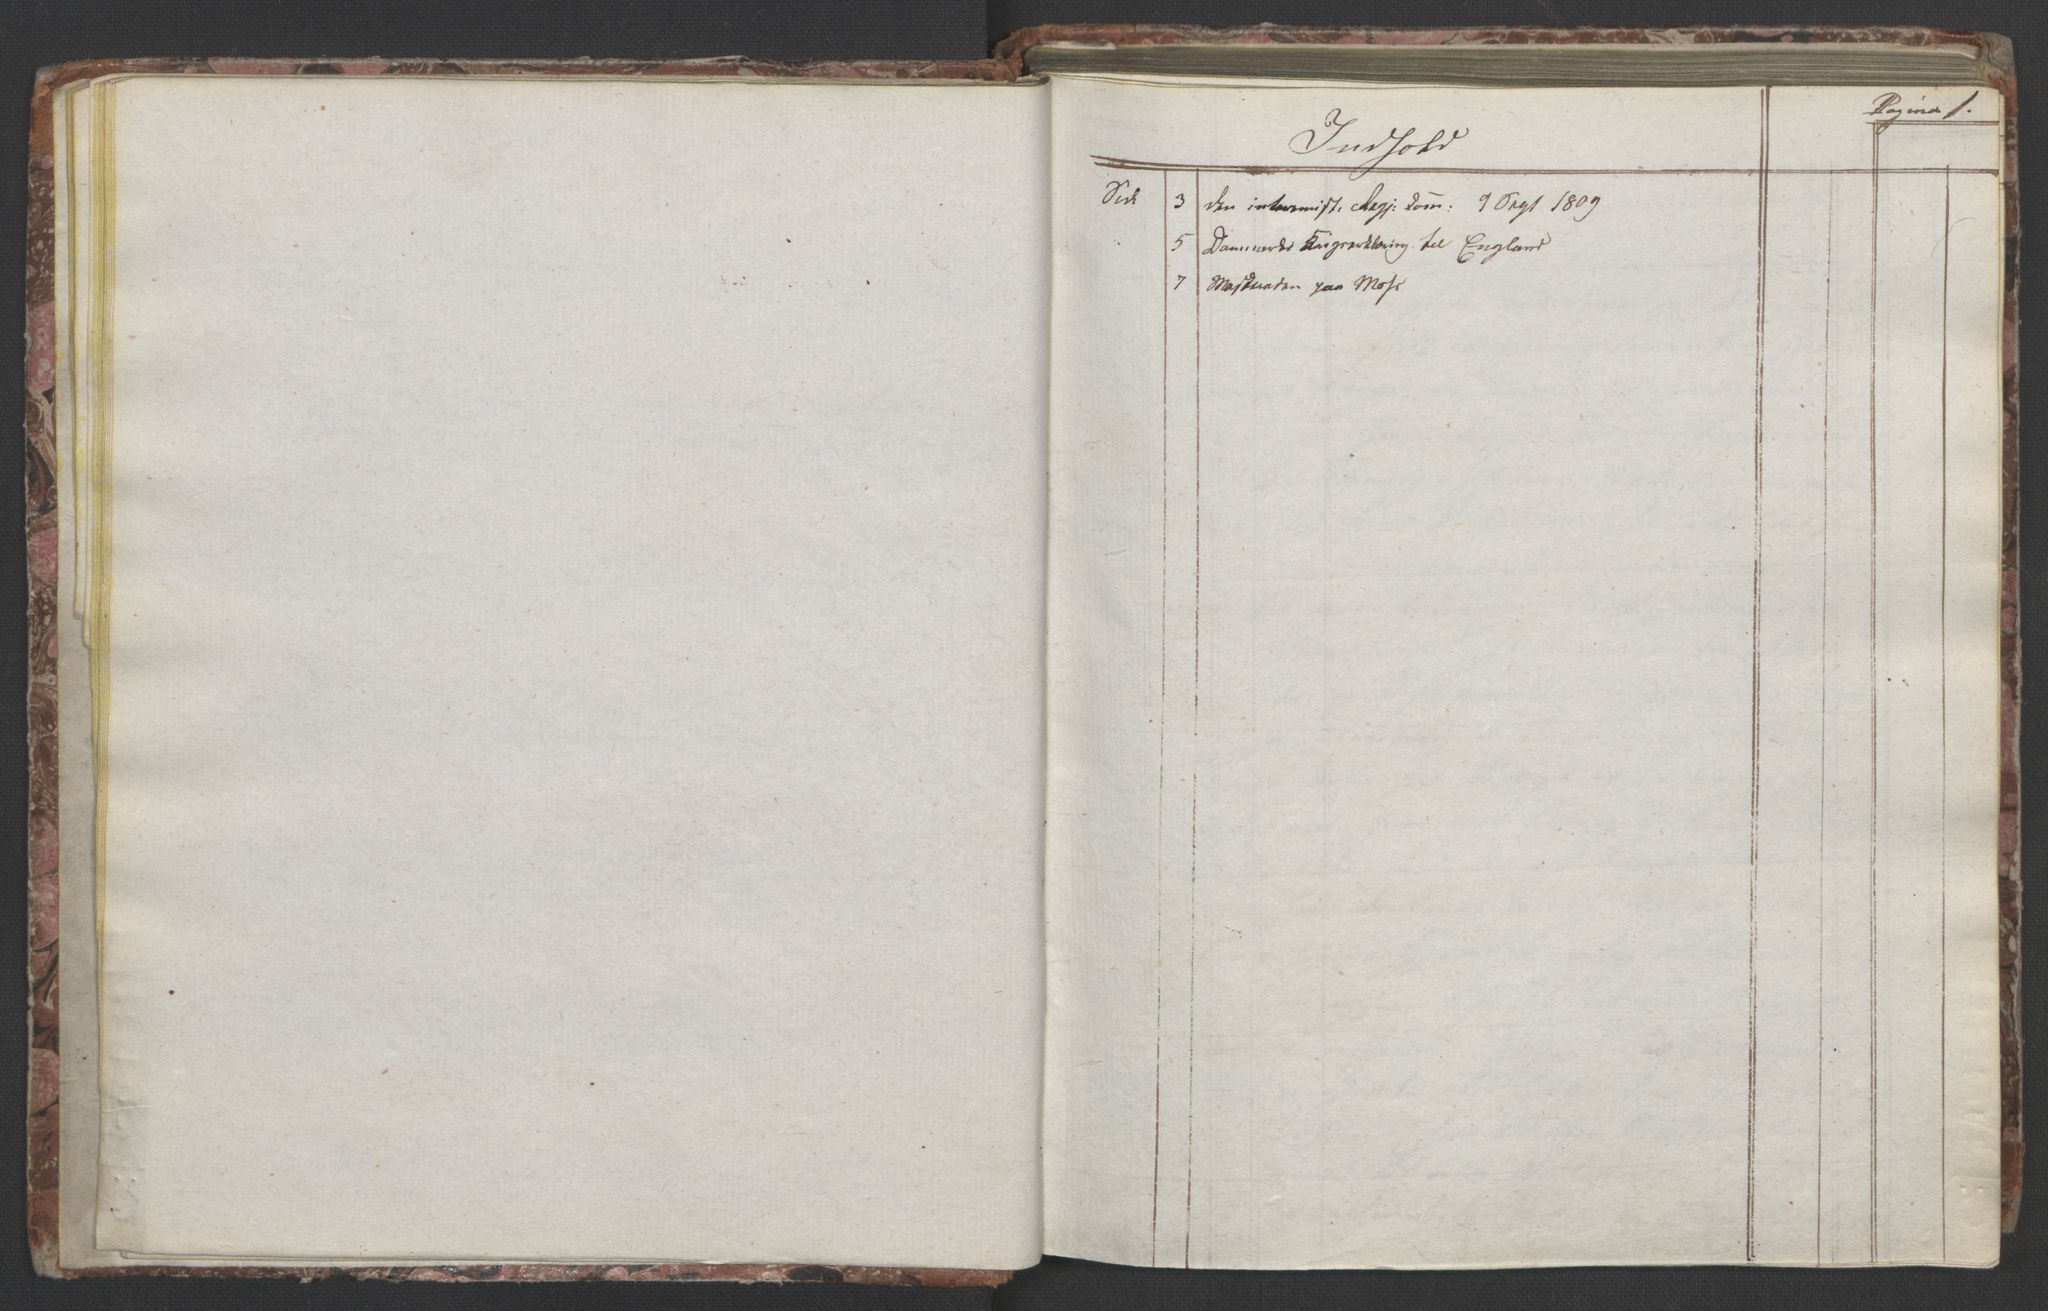 Pagina 1.
Indhold
Side 3 den interemist. Regj: Com: 9 Sept 1809
5 Danmarks Krigserklæring til England
7 paa Moss